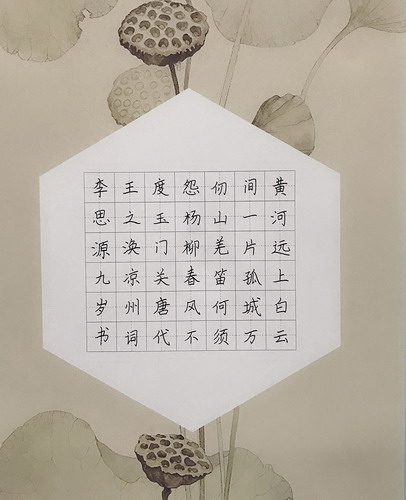 黄河远上白云
间一片孤城万
仞山羌笛何须
怨杨柳春风不
度玉门关唐代
王之涣凉州词
李思源九岁书